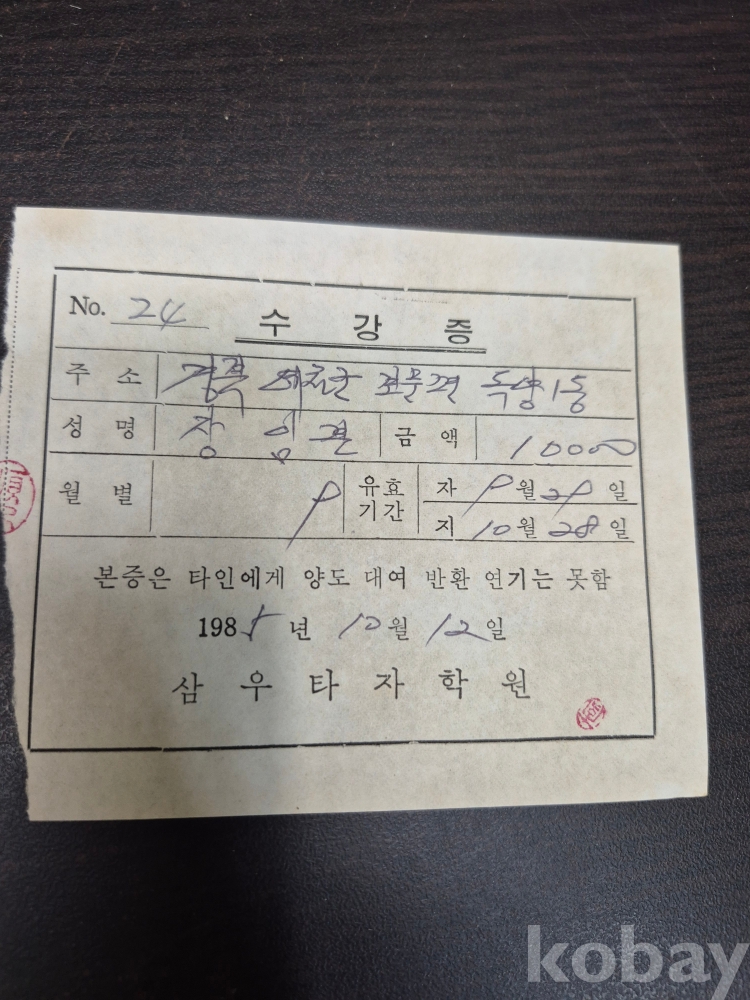 No. 24 수 강 증
주 소 경북 예천군 보문면 독양1동
성 명 장 금 액 10000
월 별 9 유효 기간 자 9월 29일
지 10월 28일
본증은 타인에게 양도 대여 반환 연기는 못함
1985년 10월 12일
삼 우 타 자 학 원
kobay